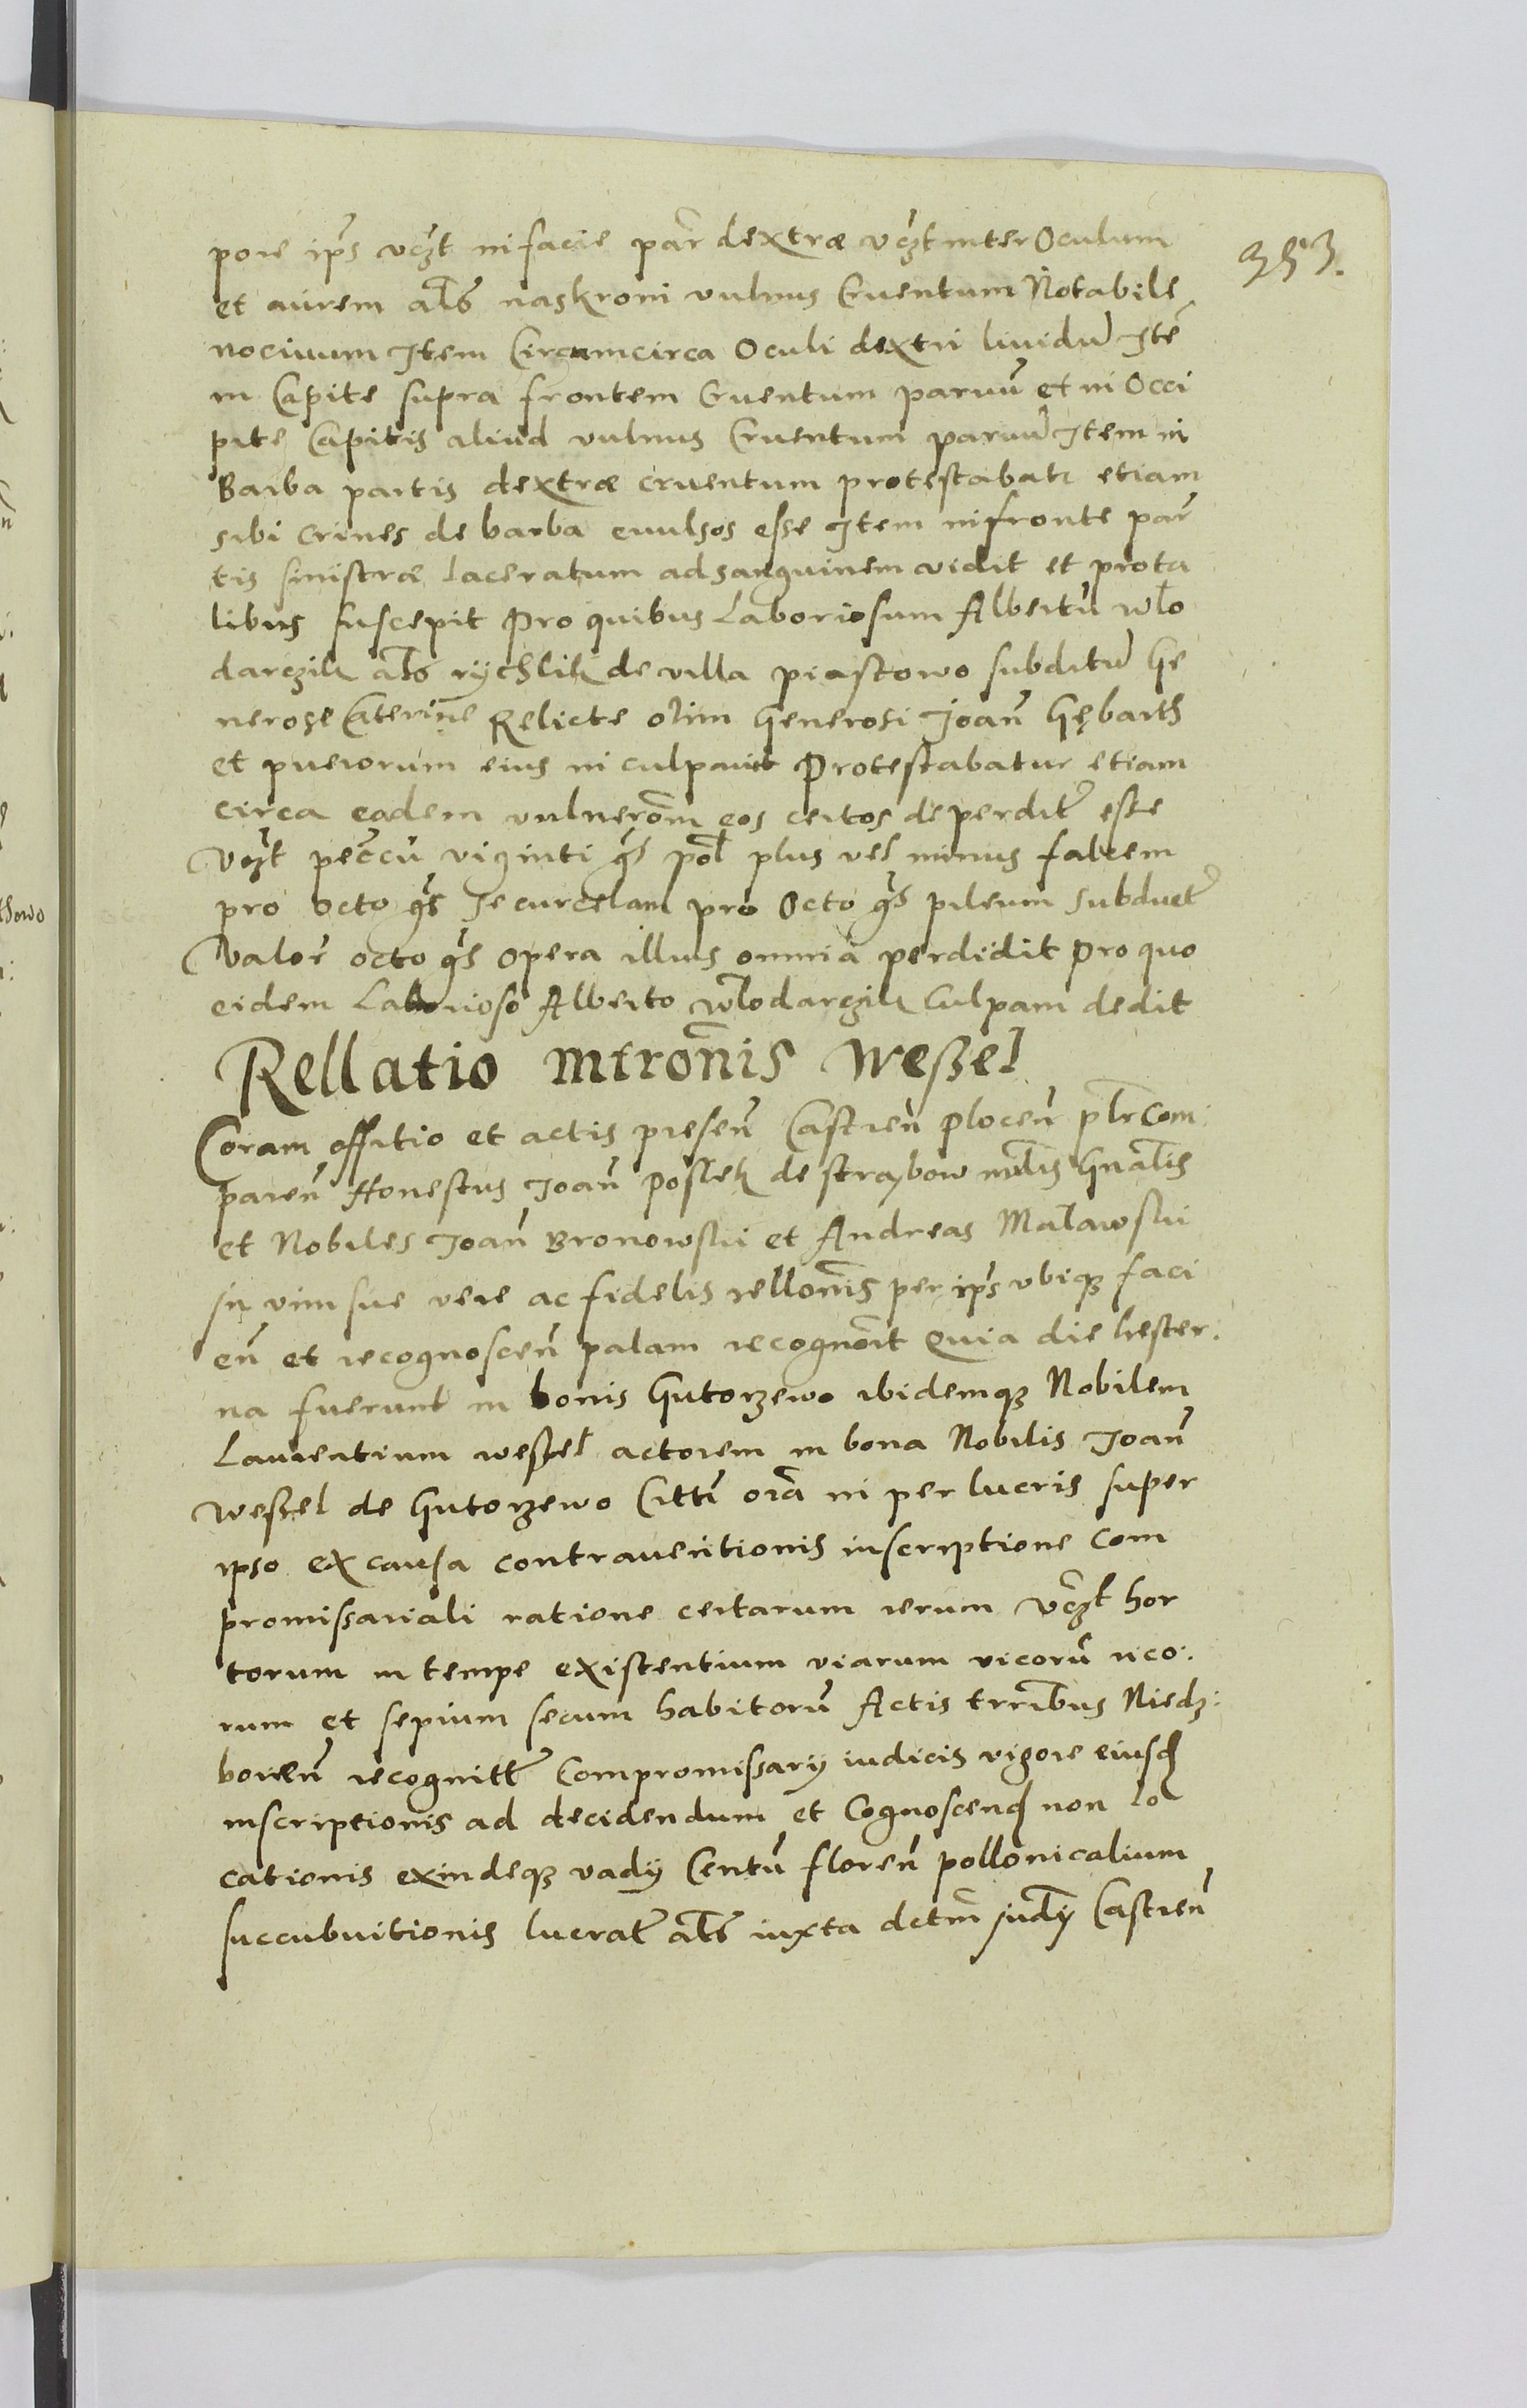 353.
pore ip̃s vcz̃t in facie par̃ dextræ vcz̃t inter Oculum
et aurem al̃s naskroni vulnus Cruentum Notabile
nociuum Item Circumcirca Oculi dextri liuidũ Itẽ
in Capite supra frontem Cruentum paruũ et in Occi
pite Capitis aliud vulnus Cruentum paruũ Item in
Barba partis dextræ cruentum protestabatr etiam
sibi crines de barba euulsos esse Item in fronte par
tis sinistræ laceratum ad sanguinem vidit et pro ta
libus suscepit Pro quibus Laboriosum Albertũ wlo
darczik al̃s rychlik de villa piastowo subditũ Ge
nerose Caterine Relicte olim Generosi Joañ Gębarth
et puerorum eius inculpauit Protestabatur etiam
circa eadem vulnerõm eos certos deperdit̃ esse
vcz̃t pec̃cũ viginti gs̃ pol̃ plus vel minus falcem
pro octo gs̃ Securcelam pro Octo gs̃ pileum subduct̃
valor̃ octo gs̃ opera illius omnia perdidit Pro quo
eidem Laborioso Alberto wlodarczik Culpam dedit
Rellatio mtrõnis Weßel
Coram offitio et actis preseñ Castreñ Ploceñ pl̃r Com:
pareñ Honestus Joañ Possek de straxbow mil̃is Gnãlis
et Nobiles Joañ Bronowski et Andreas Malawski
in vim sue vere ac fidelis rellõnis per ip̃s vbiqз faci
eñ et recognosceñ palam recognõrt Quia die hester:
na fuerunt in bonis Gutorzewo ibidemqз Nobilem
Laurentium weßel actorem in bona Nobilis Joañ
weßel de Gutorzewo Citt̃i orã in perlucris super
ipso ex causa contrauentionis inscriptione com
promissariali ratione certarum rerum vcz̃t hor
torum in tempe existentium viarum vicorũ rico:
rum et sepium secum habitorũ Actis trrĩbus Niedz:
borieñ recognitt̃ Compromissarij iudicis vigore eiusd̃
inscriptionis ad decidendum et Cognoscend̃ non lo
cationis exindeqз vadij Centũ floreñ pollonicalium
succubuitionis lucrat̃ al̃s iuxta dctm̃ judij Castreñ